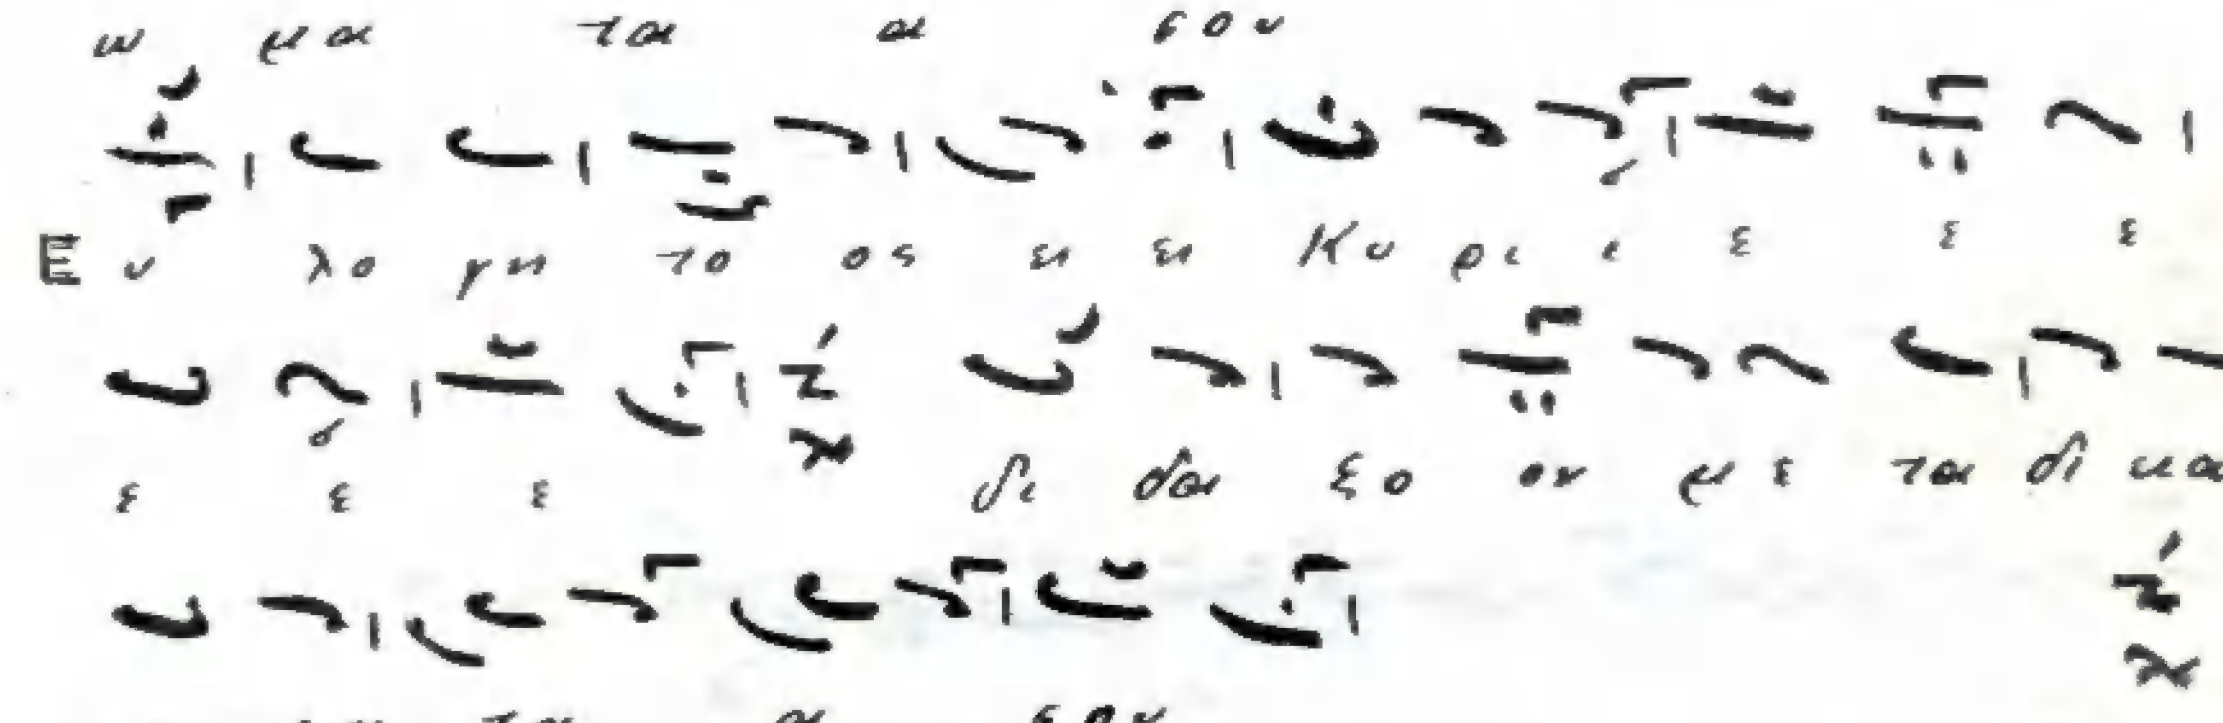 ω μα τα α σου
Ε υ λο γη το ος ει ει Κυ ρι ι ε ε ε
ε ε ε δι δα ξο ον με τα δι και
τα α σου